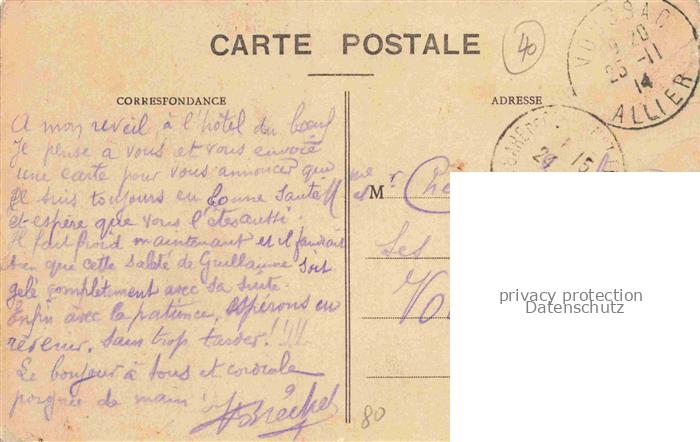 CARTE POSTALE
40
VOUSSAC
9 20
25 -11
14
ALLIER
CORRESPONDANCE
ADRESSE
GARE DE
24 15
A mon reveil, à l'hôtel du bœuf
Je pense à vous et vous envoie
une carte pour vous annoncer que
je suis toujours en bonne santé
et espère que vous l'êtes aussi.
Il fait froid maintenant et il faudrait
bien que cette saleté de Guillaume soit
gelé complètement avec sa suite.
Enfin avec la patience, espérons en
revenir, sans trop tarder!!!!
Le bonjour à tous et cordiale
poignée de main
Mr
et Mme
Les
Vou
80
privacy protection
Datenschutz